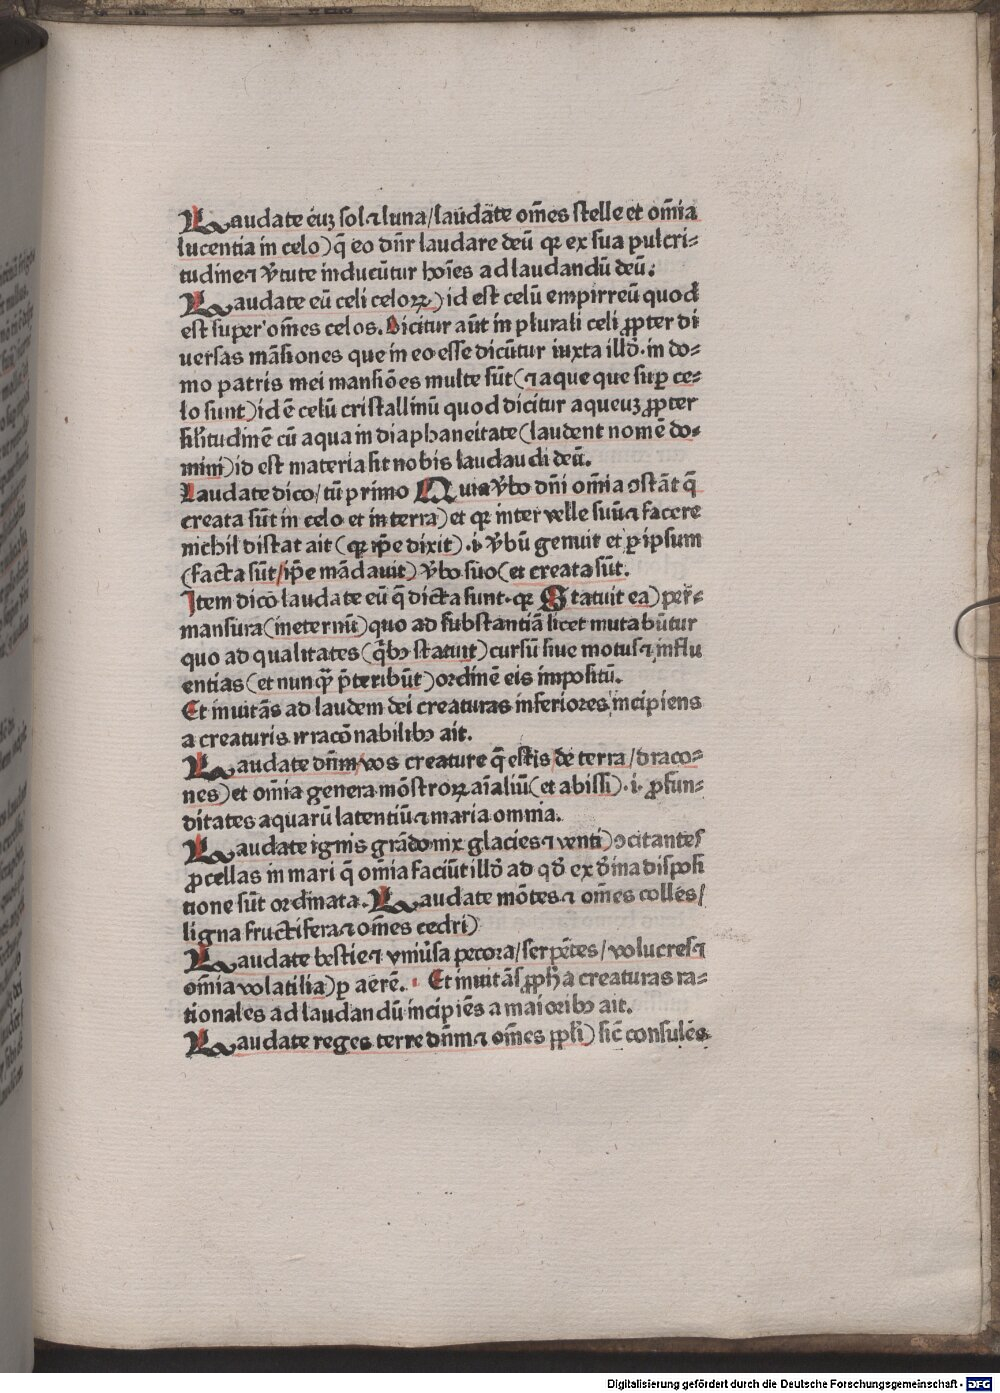 Laudate eūʒ sol ⁊ luna/laudate om̄es stelle et om̄ia
lucentia in celo) q̄ eo dn̄r laudare deū qꝛ ex sua pulcri⸗
tudine ⁊ v̓tute inducūtur hoīes ad laudandū deū.
Laudate eū celi celoꝝ) id est celū empirreū quod
est super om̄es celos. Dicitur aūt in plurali celi ꝓpter di
uersas māsiones que in eo esse dicūtur iuxta illḋ. in do⸗
mo patris mei mansiōes multe sūt (⁊ aque que suꝑ ce⸗
lo sunt) id ē celū cristallinū quod dicitur aqueuʒ ꝓpter
silitudinē cū aqua in diaphaneitate (laudent nomē do⸗
mini) id est materia sit nobis laudandi deū.
Laudate dico/tū primo Quia v̓bo dn̄i om̄ia ꝯstāt q̄
creata sūt in celo et in terra) et qꝛ inter velle suū ⁊ facere
nichil distat ait (qꝛ ip̄e dixit) .i. v̓bū genuit et ꝑ ipsum
(facta sūt/ip̄e mādauit) v̓bo suo (et creata sūt.
Item dico laudate eū q̄ dicta sunt. qꝛ Statuit ea) per⸗
mansura (in eternū) quo ad substantiā licet mutabūtur
quo ad qualitates (q̄bꝰ statuit) cursū siue motus ⁊ influ
entias (et nunq̄ p̄teribūt) ordinē eis impositū.
Et inuitās ad laudem dei creaturas inferiores incipiens
a creaturis irracōnabilibꝰ ait.
Laudate dn̄m/vos creature q̄ estis de terra/draco⸗
nes) et om̄ia genera mōstroꝝ aīaliū (et abissi) .i. ꝓfun⸗
ditates aquarū latentiū ⁊ maria omnia.
Laudate ignis grādo nix glacies ⁊ venti) ꝯcitantes
ꝓcellas in mari q̄ om̄ia faciūt illḋ ad qḋ ex d̓ina disposi
tione sūt ordinata. Laudate mōtes ⁊ om̄es colles/
ligna fructifera ⁊ om̄es cedri)
Laudate bestie ⁊ vniu̓sa pecora/serpētes/volucres ⁊
om̄ia volatilia) ꝑ aerē. Et inuitās ꝓph̄a creaturas ra⸗
tionales ad laudandū incipiēs a maioribꝰ ait.
Laudate reges terre dn̄m ⁊ om̄es ppl̄i) sic̄ consules
Digitalisierung gefördert durch die Deutsche Forschungsgemeinschaft - DFG